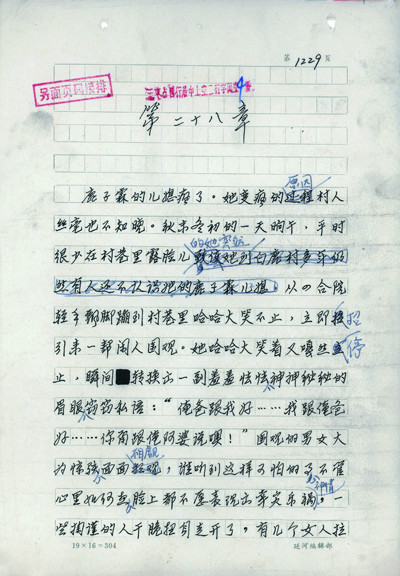 第 1229 页
另面页码续排
第二十八章
鹿子霖的儿媳疯了。她变疯的过程村人
原因
丝毫也不知晓。秋末冬初的一天晌午,平时
很少在村巷里露脸儿
的她突然
然有人还不认识她的鹿子霖儿媳,从四合院
轻手飘脚蹦到村巷里哈哈大笑不止,立即招
引来一帮闲人围观。她哈哈大笑着又嘎然
停
止,瞬间转换出一副羞羞怯怯神神秘秘的
眉眼窃窃私语:“俺爸跟我好……我跟俺爸
好……你甭跟俺阿婆说噢!”围观的男女大
为惊骇面面相觑,谁听到这样可怕的
心里如何
脸上都不愿表现出幸灾乐祸,一
些拘谨的人干脆扭身走开了,有几个女人拉
19×16=304
延河编辑部